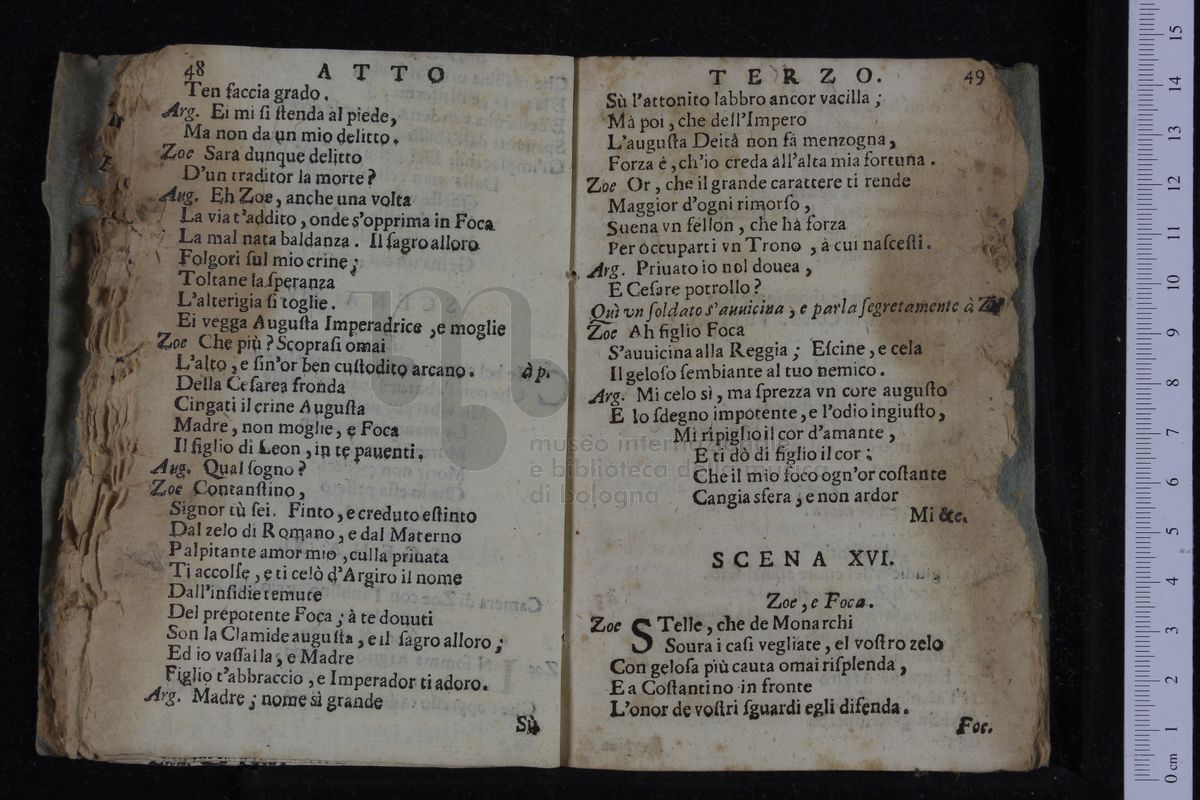 48 ATTO
Ten faccia grado.
Arg. Ei mi ſi ſtenda al piede,
Ma non da un mio delitto.
Zoe Sarà dunque delitto
D'un traditor la morte?
Aug. Eh Zoe, anche una volta
La via t'addito, onde s'opprima in Foca
La mal nata baldanza. Il ſagro alloro
Folgori ſul mio crine;
Toltane la ſperanza
L'alterigia ſi toglie.
Ei vegga Auguſta Imperadrice, e moglie
Zoe Che più? Scopraſi omai
L'alto, e ſin'or ben cuſtodito arcano. à p.
Della Ceſarea fronda
Cingati il crine Auguſta
Madre, non moglie, e Foca
Il figlio di Leon, in te paventi.
Aug. Qual ſogno?
Zoe Contanſtino,
Signor tù ſei. Finto, e creduto eſtinto
Dal zelo di Romano, e dal Materno
Palpitante amor mio, culla priuata
Ti accolſe, e ti celò d'Argiro il nome
Dall'inſidie temute
Del prepotente Foca; à te douuti
Son la Clamide auguſta, e il ſagro alloro;
Ed io vaſſalla, e Madre
Figlio t'abbraccio, e Imperador ti adoro.
Arg. Madre; nome sì grande
Sù
TERZO. 49
Sù l'attonito labbro ancor vacilla;
Mà poi, che dell'Impero
L'auguſta Deità non fà menzogna,
Forza è, ch'io creda all'alta mia fortuna.
Zoe Or, che il grande carattere ti rende
Maggior d'ogni rimorſo,
Suena vn fellon, che hà forza
Per occuparti vn Trono, à cui naſceſti.
Arg. Priuato io nol douea,
E Ceſare potrollo?
Quì vn ſoldato s'auuicina, e parla ſegretamente à
Zoe Ah figlio Foca
S'auuicina alla Reggia; Eſcine, e cela
Il geloſo ſembiante al tuo nemico.
Arg. Mi celo sì, ma ſprezza vn core auguſto
E lo ſdegno impotente, e l'odio ingiuſto,
Mi ripiglio il cor d'amante,
E ti dò di figlio il cor;
Che il mio foco ogn'or coſtante
Cangia sfera, e non ardor
Mi &c.
SCENA XVI.
Zoe, e Foca.
Zoe STelle, che de Monarchi
Soura i caſi vegliate, el voſtro zelo
Con geloſa più cauta omai riſplenda,
E a Coſtantino in fronte
L'onor de voſtri ſguardi egli difenda.
Foc.
museo internazionale
e biblioteca della musica
di bologna
0 cm 1 2 3 4 5 6 7 8 9 10 11 12 13 14 15